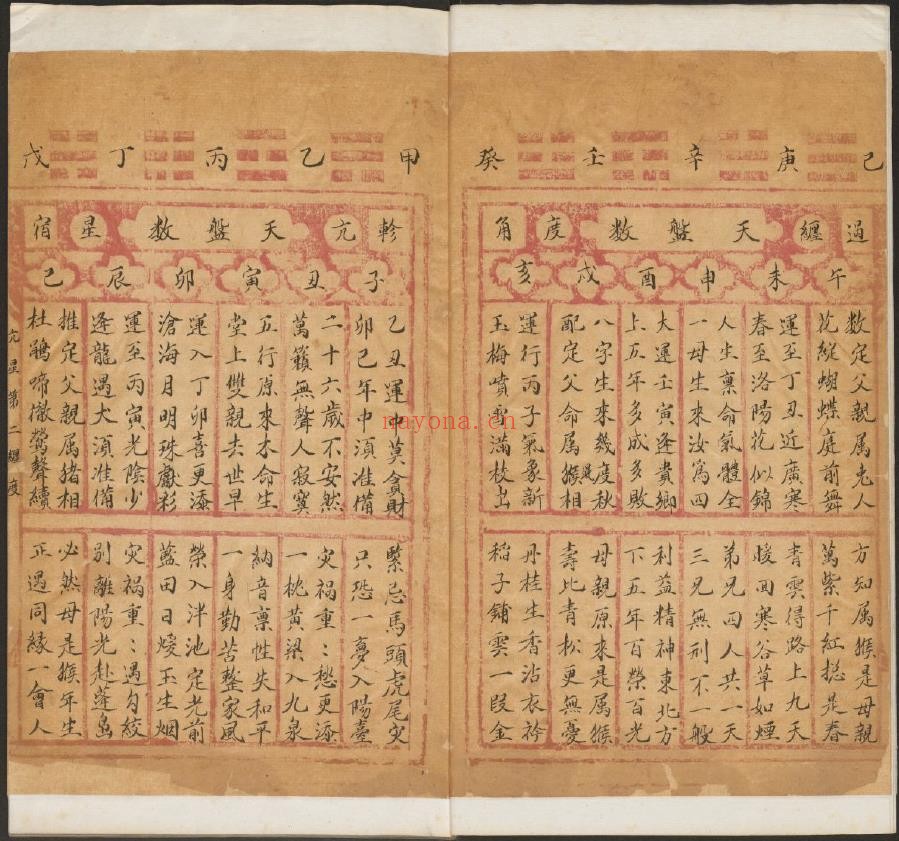 己庚辛壬癸
過纏天盤數度角
午未申酉戌亥
数定父親属老人
花綻蝴蝶庭前舞
運至丁丑近廣寒
春至洛陽花似錦
人生禀命氣體全
一母生來汝爲四
大運壬寅逢貴鄉
上五年多成多敗
八字生來幾度秋
配定父命属猴相
運行丙子氣象新
玉梅噴雪滿枝出
方知属猴是母親
萬紫千紅揔是春
青雲得路上九天
暖回寒谷草如煙
弟兄四人共一天
三兄無刑不一般
利益精神東北方
下五年百榮百光
母親原來是属猴
壽比青松更無憂
丹桂生香沾衣衿
稻子鋪雲一段金
甲乙丙丁戊
軫亢天盤數星宿
子丑寅卯辰巳
乙丑運中莫貪財
卯巳年中湏准備
二十六歲不安然
萬籟無聲人寂寞
五行原來本命生
堂上雙親去世早
運入丁卯喜更添
滄海月明珠獻彩
運至丙寅光陰少
逢龍遇犬湏准備
推定父親属猪相
杜鵑啼徹鶯聲續
緊忌馬頭虎尾灾
只恐一夢入陽臺
灾禍重:愁更添
一枕黃粱入九泉
納音禀性失和平
一身勤苦整家風
榮入泮池定老前
藍田日煖玉生烟
灾禍重:遇勾絞
別離陽光赴蓬島
必然母是猴年生
正遇同緣一會人
亢星第二纒度
nayona.cn